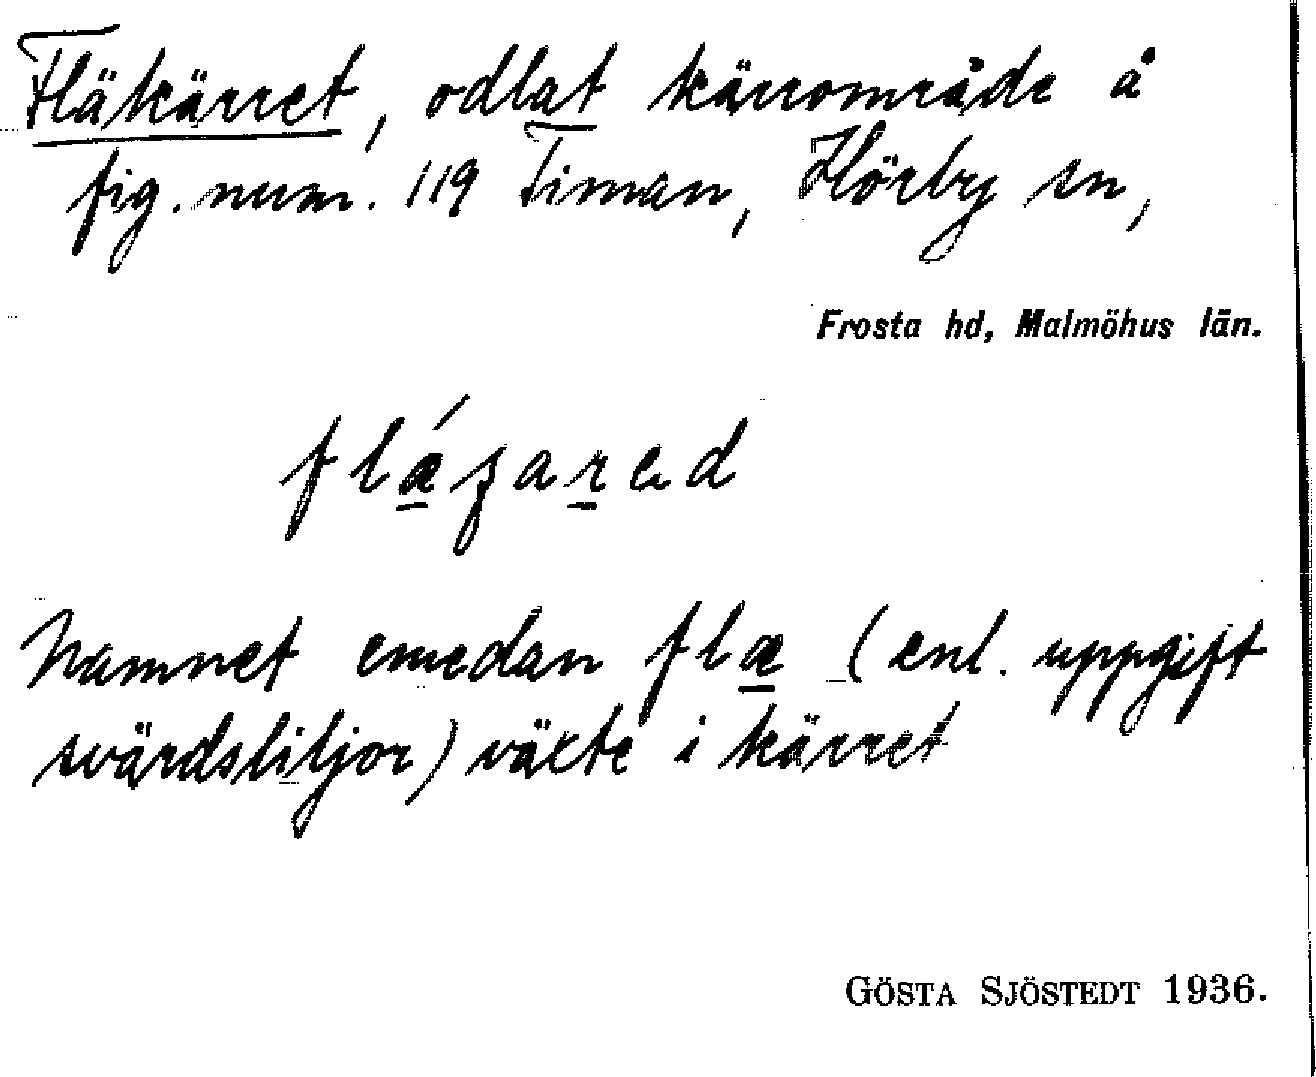 Fläkärret, odlat kärrområde å
fig. num. 119 Timan, Hörby sn,
Frosta hd, Malmöhus län.
Namnet emedan flæ (enl. uppgift
svärdsliljor) växte i kärret
GÖSTA SJÖSTEDT 1936.